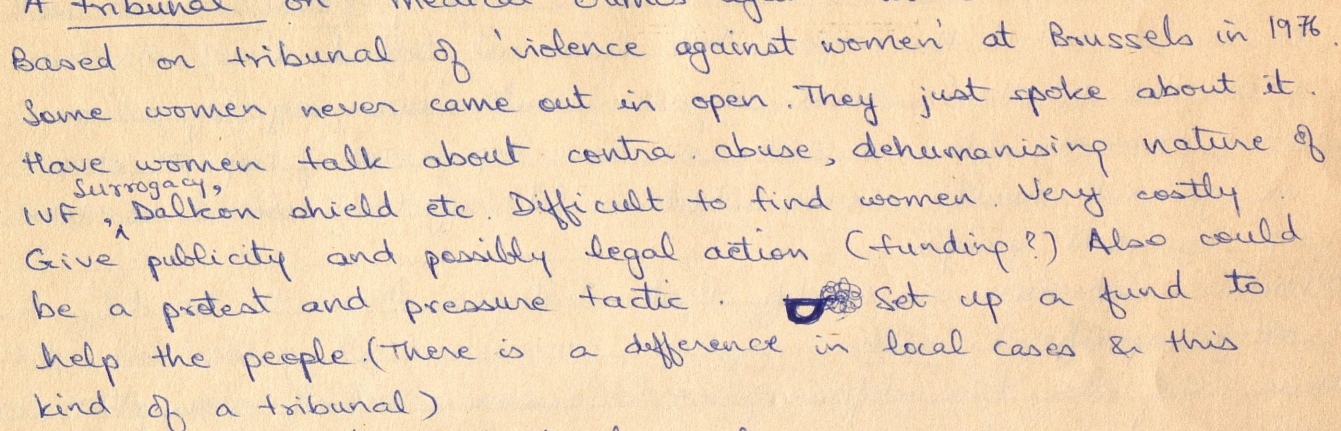 A tribunal on medical crimes
Based on tribunal of 'violence against women' at Brussels in 1976.
Some women never came out in open. They just spoke about it.
Have women talk about contra. abuse, dehumanising nature of
Surrogacy,
IUF, Dalkon shield etc. Difficult to find women. Very costly.
Give publicity and possibly legal action (funding?) Also could
be a protest and pressure tactic. Set up a fund to
help the people. (There is a difference in local cases & this
kind of a tribunal)